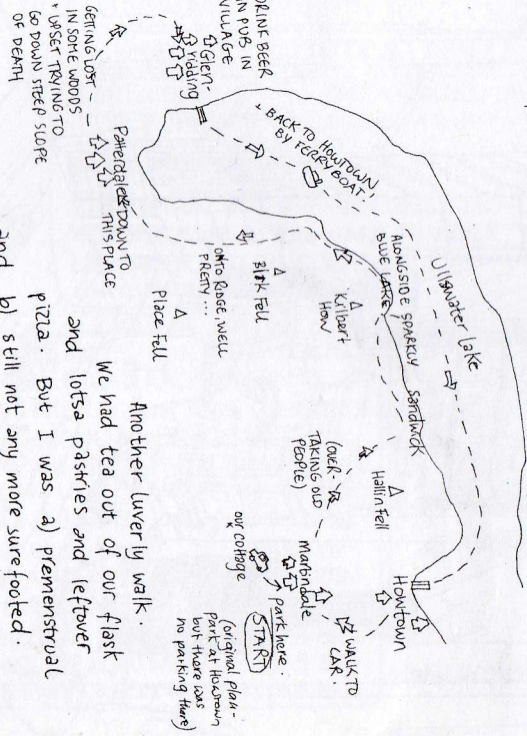 DRINK BEER
IN PUB IN
VILLAGE
Glen-
ridding
GETTING LOST
IN SOME WOODS
+ UPSET TRYING TO
GO DOWN STEEP SLOPE
OF DEATH
Patterdale
DOWN TO
THIS PLACE
+ BACK TO HOWTOWN,
BY FERRY BOAT.
Ullswater Lake
ALONGSIDE SPARKLY
BLUE LAKE
Sandwick
Kilbert
How
Birk Fell
ONTO RIDGE, WELL
PRETTY ....
Place Fell
Hallin Fell
(OVER-
TAKING OLD
PEOPLE)
Howtown
WALK TO
CAR.
Martindale
our cottage
park here.
START
(original plan-
park at Howtown
but there was
no parking there)
Another luverly walk.
We had tea out of our flask
and lotsa pastries and leftover
pizza. But I was a) premenstrual
and b) still not any more surefooted.